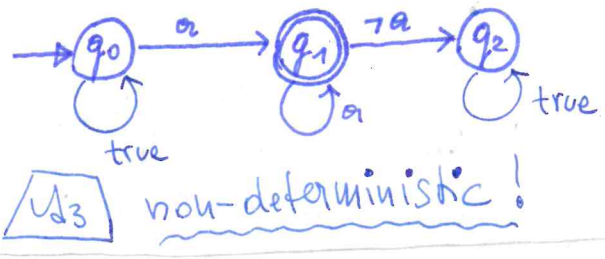 a ¬a
q0 q1 q2
a true
true
A3 non-deterministic!